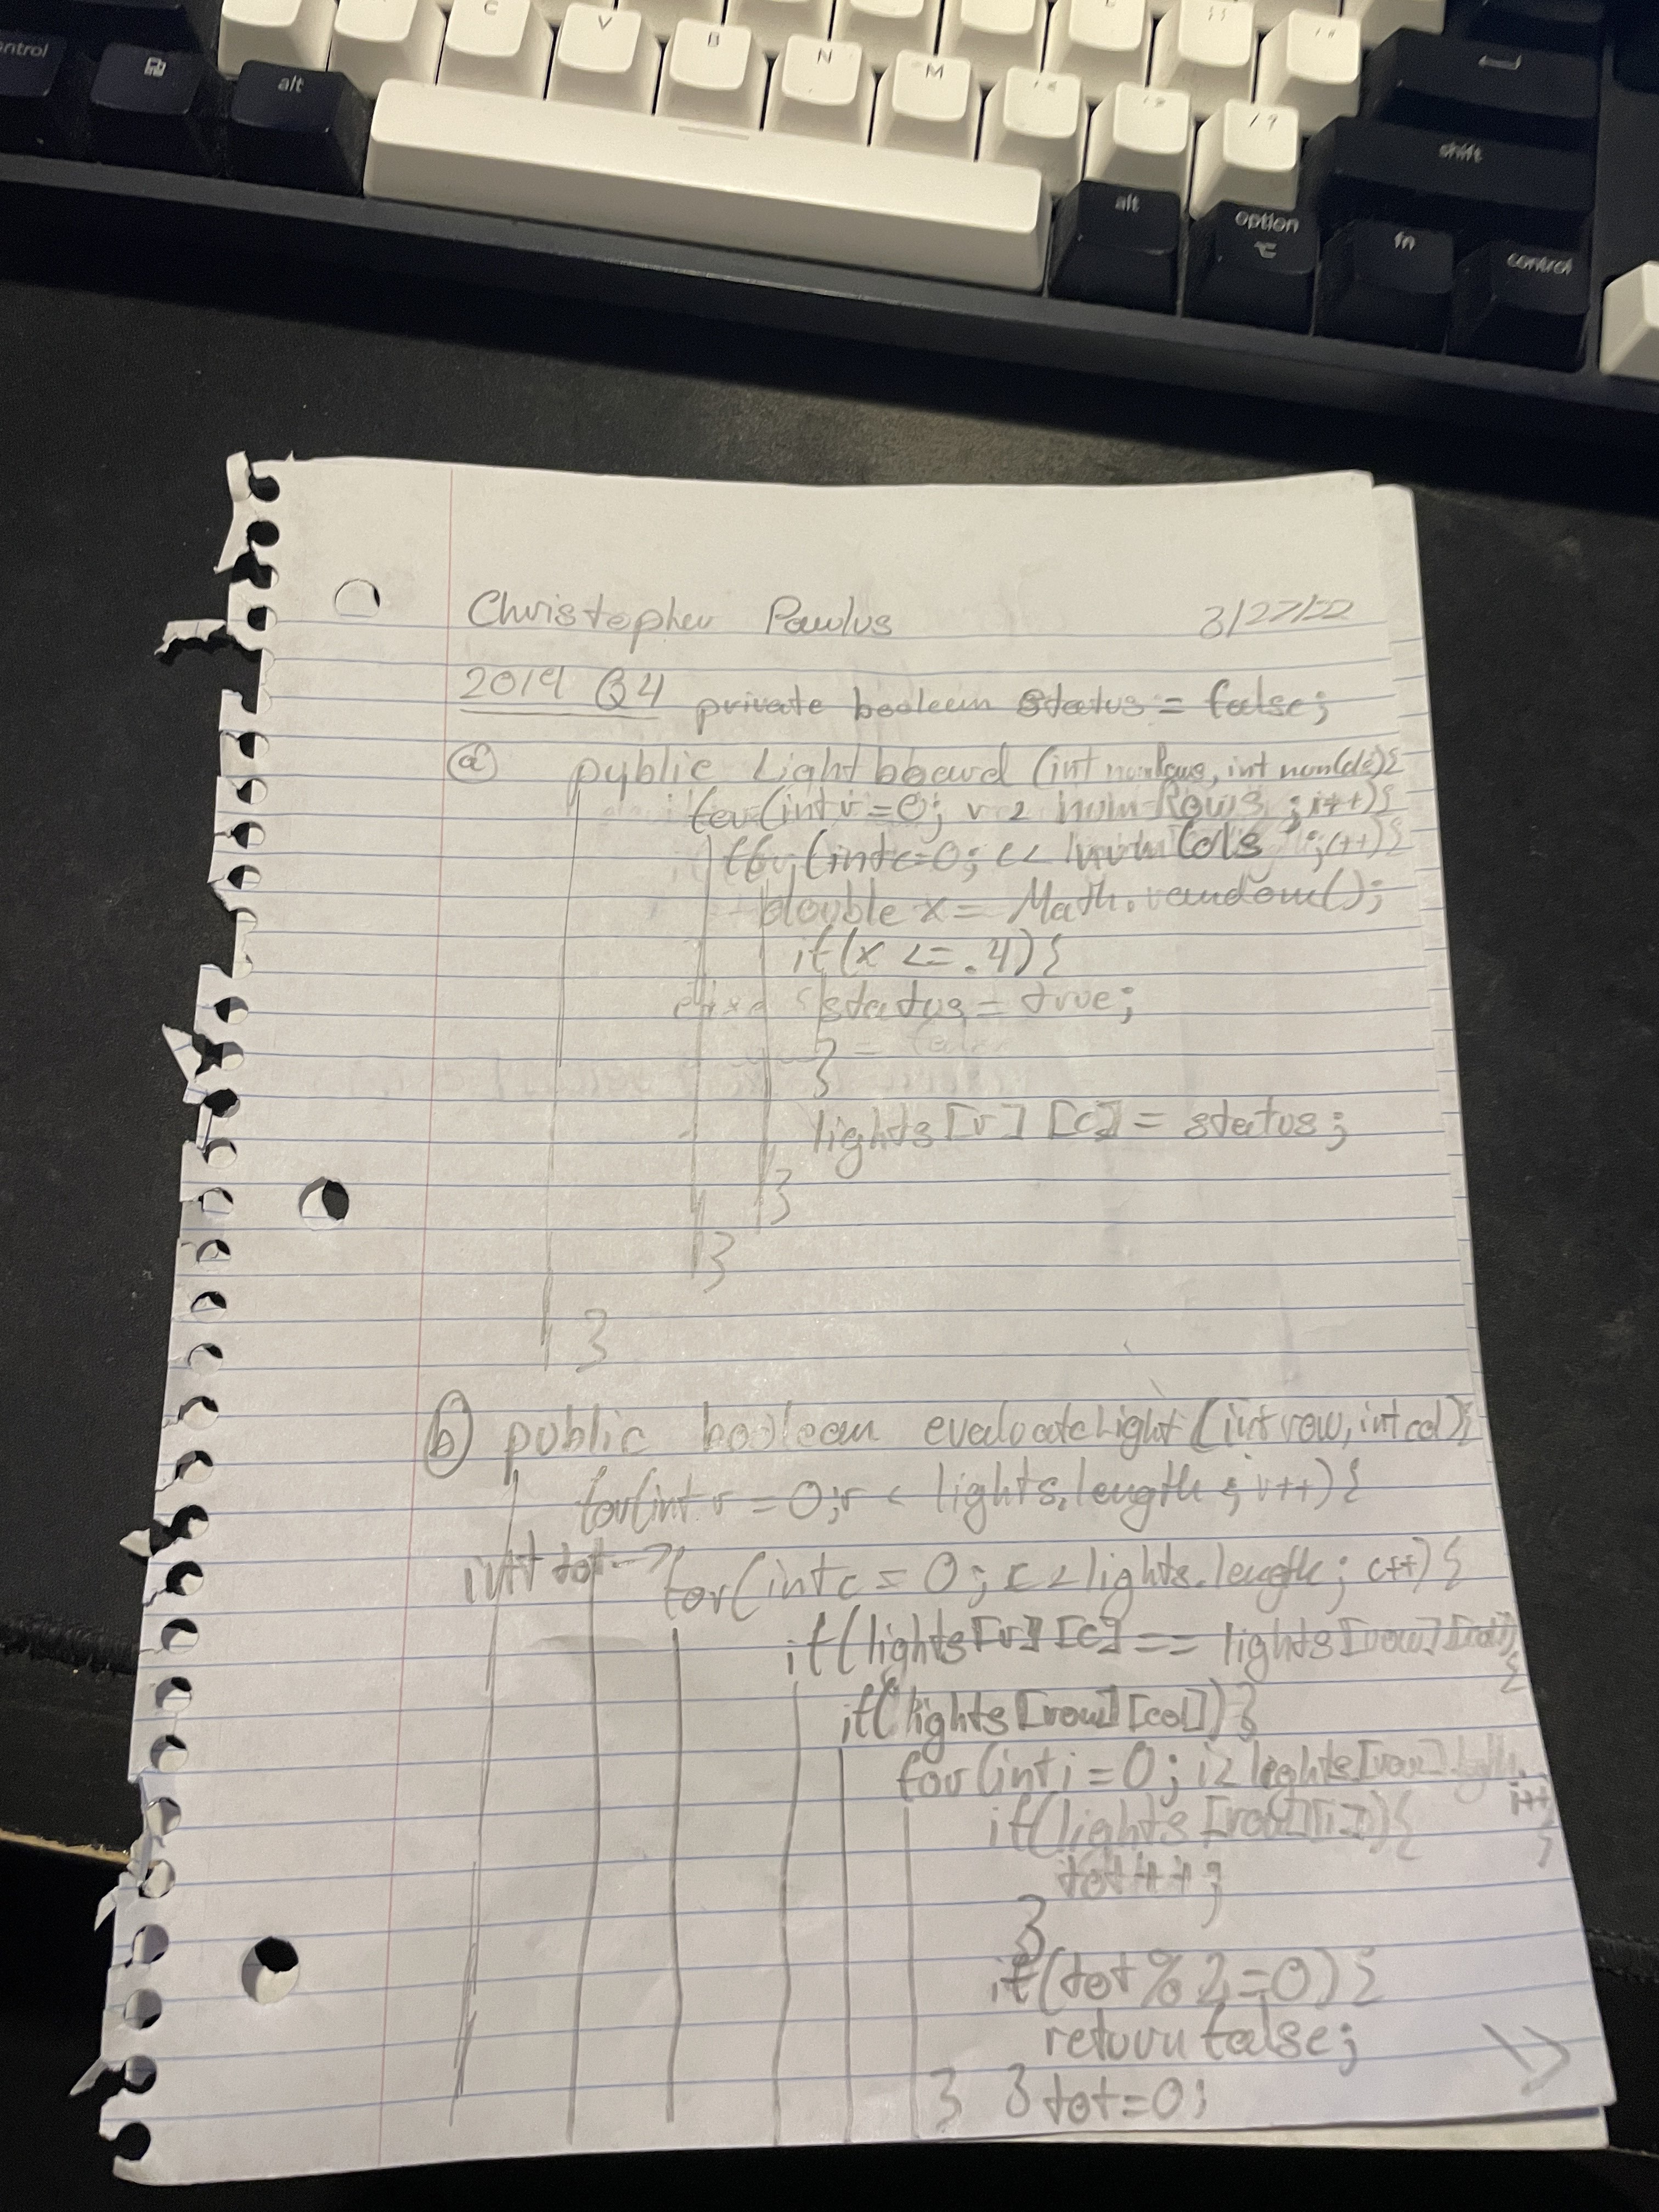 C V B N M
control alt
shift
alt option fn control
Christopher Paulus 3/27/22
2019 Q4 private boolean status = false;
(a) public Lightboard (int numRows, int numCols){
for(int r=0; r < numRows ; i++){
for(int c=0; c< numCols ;c++){
double x = Math.random();
if(x <= .4){
else status = true;
}
lights[r][c] = status;
}
}
}
(b) public boolean evaluateLight(int row, int col){
for(int r = 0;r < lights.length; r++){
int tot-> for(int c = 0; c < lights.length; c++){
if(lights[r][c] == lights[row][col])
{
if(lights[row][col]){
for(int i = 0; i< lights[row].length.
i++
if(lights[row][i]){ }
tot++;
}
if(tot%2=0){
return false;
} } tot=0;